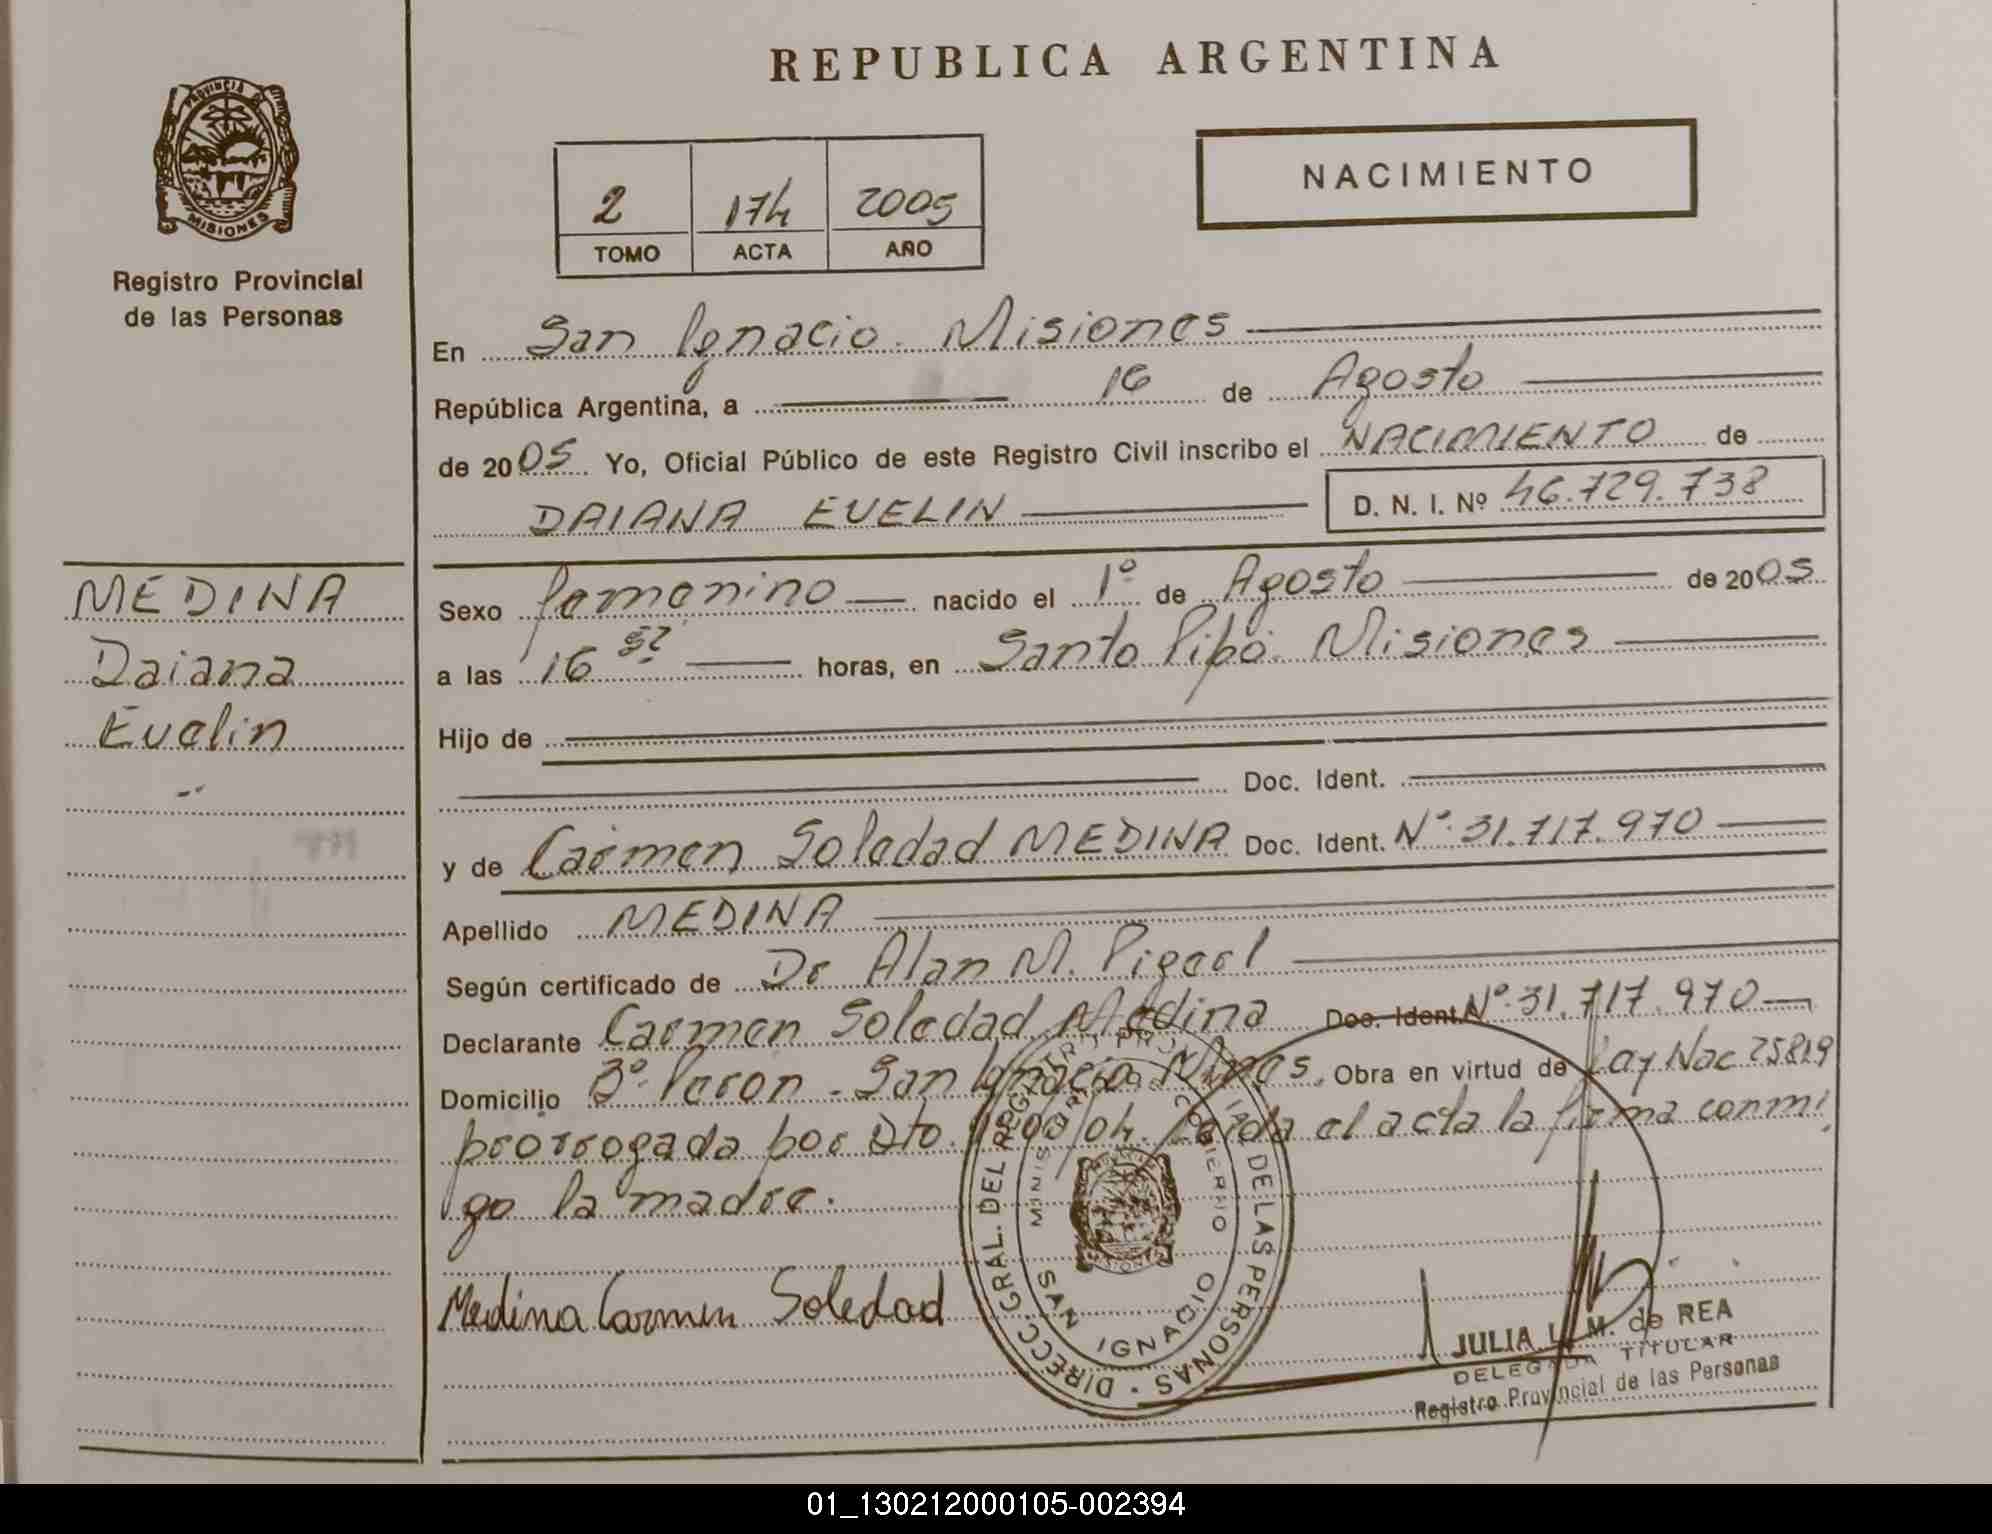 REPUBLICA ARGENTINA
PROVINCIA DE
MISIONES
Registro Provincial
de las Personas
2 174 2005
TOMO ACTA AÑO
NACIMIENTO
En San Ignacio. Misiones
República Argentina, a 16 de Agosto
de 2005 Yo, Oficial Público de este Registro Civil inscribo el NACIMIENTO de
DAIANA EVELIN D. N. I. Nº 46.729.738
MEDINA
Daiana
Evelin
Sexo femenino nacido el 1º de Agosto de 2005
a las 16 horas, en Santo Pipó. Misiones
Hijo de
Doc. Ident.
y de Carmen Soledad MEDINA Doc. Ident. Nº 31.717.970
Apellido MEDINA
Según certificado de Dr Alan M.
Declarante Carmen Soledad Medina Doc. Ident. Nº 31.717.970
Domicilio Bº Peron - San Ignacio Mnes. Obra en virtud de Ley Nac 25819
prorrogada por Dto. /04. Leida el acta la firma conmi
go la madre.
Medina Carmen Soledad
DIRECC. GRAL. DEL REGISTRO PROVINCIAL DE LAS PERSONAS
MINISTERIO DE GOBIERNO
MISIONES
SAN IGNACIO
JULIA L. M. de REA
DELEGADA TITULAR
Registro Provincial de las Personas
01_130212000105-002394